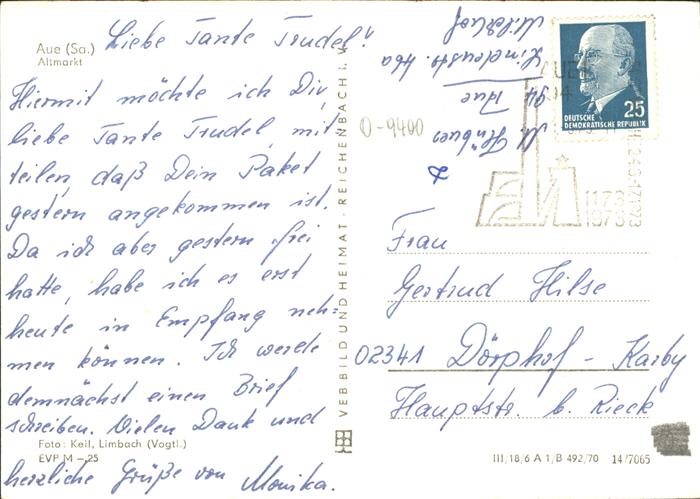 Aue (Sa.)
Altmarkt
Liebe Tante Trudel!
Hiermit möchte ich Dir,
liebe Tante Trudel, mit
teilen, daß Dein Paket
gestern angekommen ist.
Da ich aber gestern frei
hatte, habe ich es erst
heute in Empfang neh=
men können. Ich werde
demnächst einen Brief
schreiben. Vielen Dank und
herzliche Grüße von Monika.
Foto: Keil, Limbach (Vogtl.)
EVP M -,25
VEB BILD UND HEIMAT · REICHENBACH I. V.
M.
94 Aue
Lindenstr.
O-9400
25
DEUTSCHE
DEMOKRATISCHE REPUBLIK
AUE
1173
1973
Frau
Gertrud Hilse
02341 Dörphof - Karby
Hauptstr. b. Rieck
III/18/6 A 1/B 492/70 14/7065